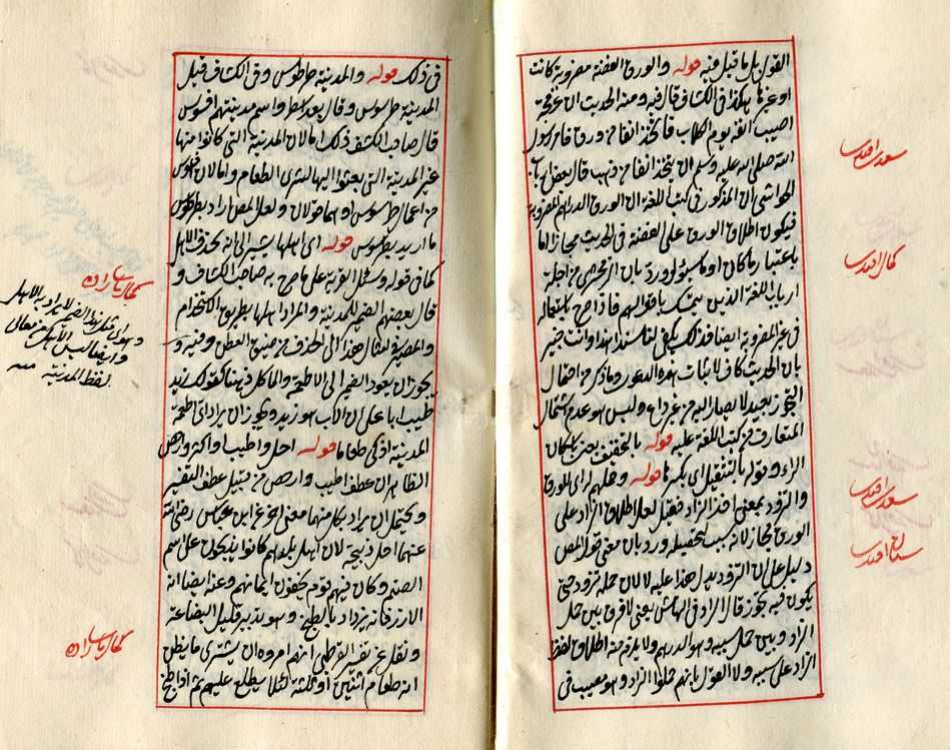 القول بل ما قيل فيه قوله والورق الفضة مضروبة كانت
او غيرها هكذا في الكشاف قال فيه ومنه الحديث ان عرفجة
اصيب انفه يوم الكلاب فاتخذ انفا من ورق فامر رسول
الله صلى الله عليه وسلم ان يتخذ انفا من ذهب قال بعض
الحواشي ان المذكور في كتب اللغة ان الورق الدراهم المضروبة
فيكون اطلاق الورق على الفضة في الحديث مجازا اما
باعتبار ما كان او ما سيؤل ورد بان الزمخشري من اجلة
ارباب اللغة الذين يتمسك باقوالهم فاذا صرح باستعماله
في غير المضروبة ايضا فذلك يكفى لنا سندا هذا وانت خبير
بان الحديث كاف لاثبات هذه الدعوى وما ذكر من احتمال
التجوز بعيد لا يصار اليه من غير داع وليس هو عدم اشتمال
المتعارف من كتب اللغة عليه قوله بالتخفيف يعنى باسكان
الراء وقوله بالتثقيل اى بكسرها قوله وحملهم له اى للورق
والتزود بمعنى اخذ الزاد فقيل لعل اطلاق الزاد على
الورق مجاز لانه سبب لتحصيله ورد بان معنى قول المص
دليل على ان التزود يدل هذا عليه لا لان حمله تزود حتى
يكون فيه تجوز قال الراد في الهامش يعنى لا فرق بين حمل
الزاد وبين حمل سببه وهو الدراهم ولا يلزم منه اطلاق لفظ
الزاد على سببه ولا القول بانهم حملوا الزاد وهو معيب في
سعدى افندى
كمال افندى
سعدى افندى
سنان افندى
في ذلك قوله والمدينة طرطوس وفى الكشاف قيل
المدينة طرسوس وقال بعد سطر واسم مدينتهم افسوس
قال صاحب الكشف ذلك اما لان المدينة التى كانوا منها
غير المدينة التى بعثوا اليها لشرى الطعام واما لان افسوس
من اعمال طرسوس او هما قولان ولعل المص اراد بطرطوس
ما اريد بطرسوس قوله اى اهلها يشير الى انه بحذف الاهل
كما في قوله وسئل القرية على ما صرح به صاحب الكشاف و
قال بعضهم الضمير للمدينة والمراد اهلها بطريق الاستخدام
يجوز ان يعود الضمير الى الاطعمة والمأكل ذهنا كقولك زيد
طيب ابا على ان الاب هو زيد ويجوز ان يراد اى اطعمة
المدينة ازكى طعاما قوله احل واطيب او اكثر وارخص
الظاهر ان عطف اطيب وارخص من قبيل عطف التفسير
ويحتمل ان يراد بكل منها معنى اخر عن ابن عباس رضى الله
عنهما احل ذبيحة لان اهل بلدهم كانوا يذبحون على اسم
الصنم وكان فيهم قوم يخفون ايمانهم وعنه ايضا انه
الارز فانه يزداد بالطبخ وهو تدبير قليل البضاعة
ونقل عن تفسير القرطبى انهم امروه ان يشترى ما يظن
انه طعام اثنين او ثلثة لئلا يطلع عليهم ثم اذا طبخ
كمال باشا زاده
كمال باشا زاده
لفظ المدينة منه